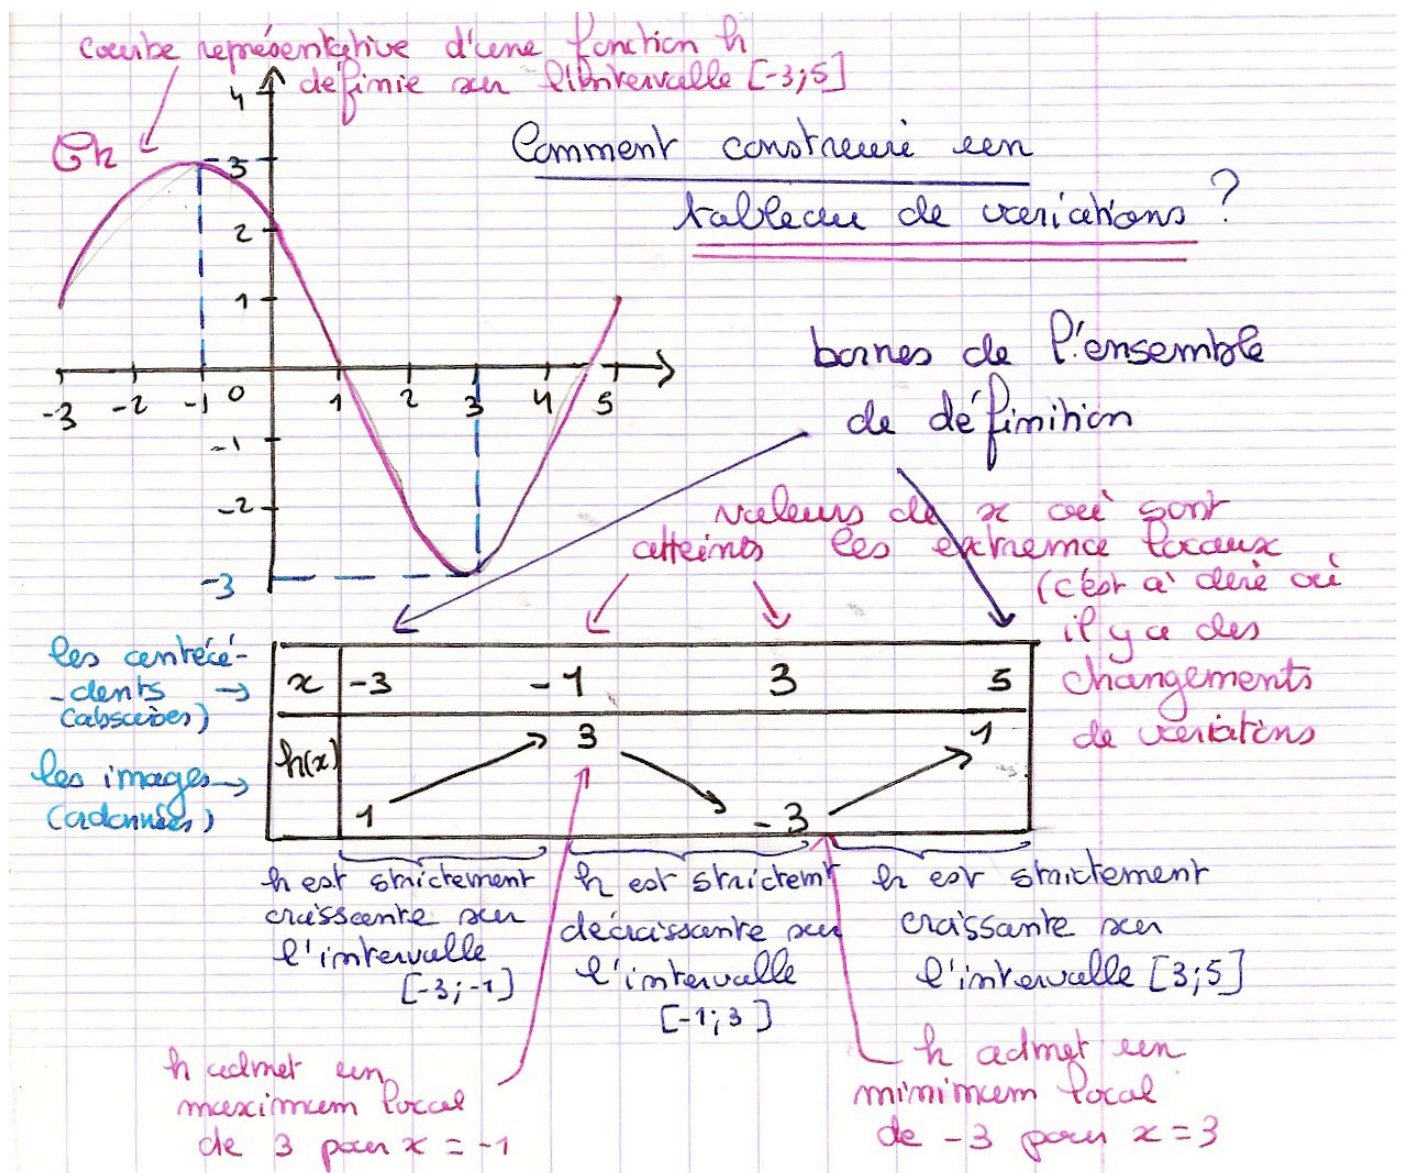 courbe représentative d'une fonction h
définie sur l'intervalle [-3;5]
Ch
Comment construire un
tableau de variations ?
4
3
2
1
-3 -2 -1 0 1 2 3 4 5
-1
-2
-3
bornes de l'ensemble
de définition
valeurs de x où sont
atteints les extrema locaux
(c'est à dire où
il y a des
changements
de variations
les antécé-
-dents →
(abscisses)
les images →
(ordonnées)
x -3 -1 3 5
h(x) 1 3 -3 1
h est strictement
croissante sur
l'intervalle
[-3;-1]
h est strictemt
décroissante sur
l'intervalle
[-1;3]
h est strictement
croissante sur
l'intervalle [3;5]
h admet un
maximum local
de 3 pour x = -1
h admet un
minimum local
de -3 pour x = 3